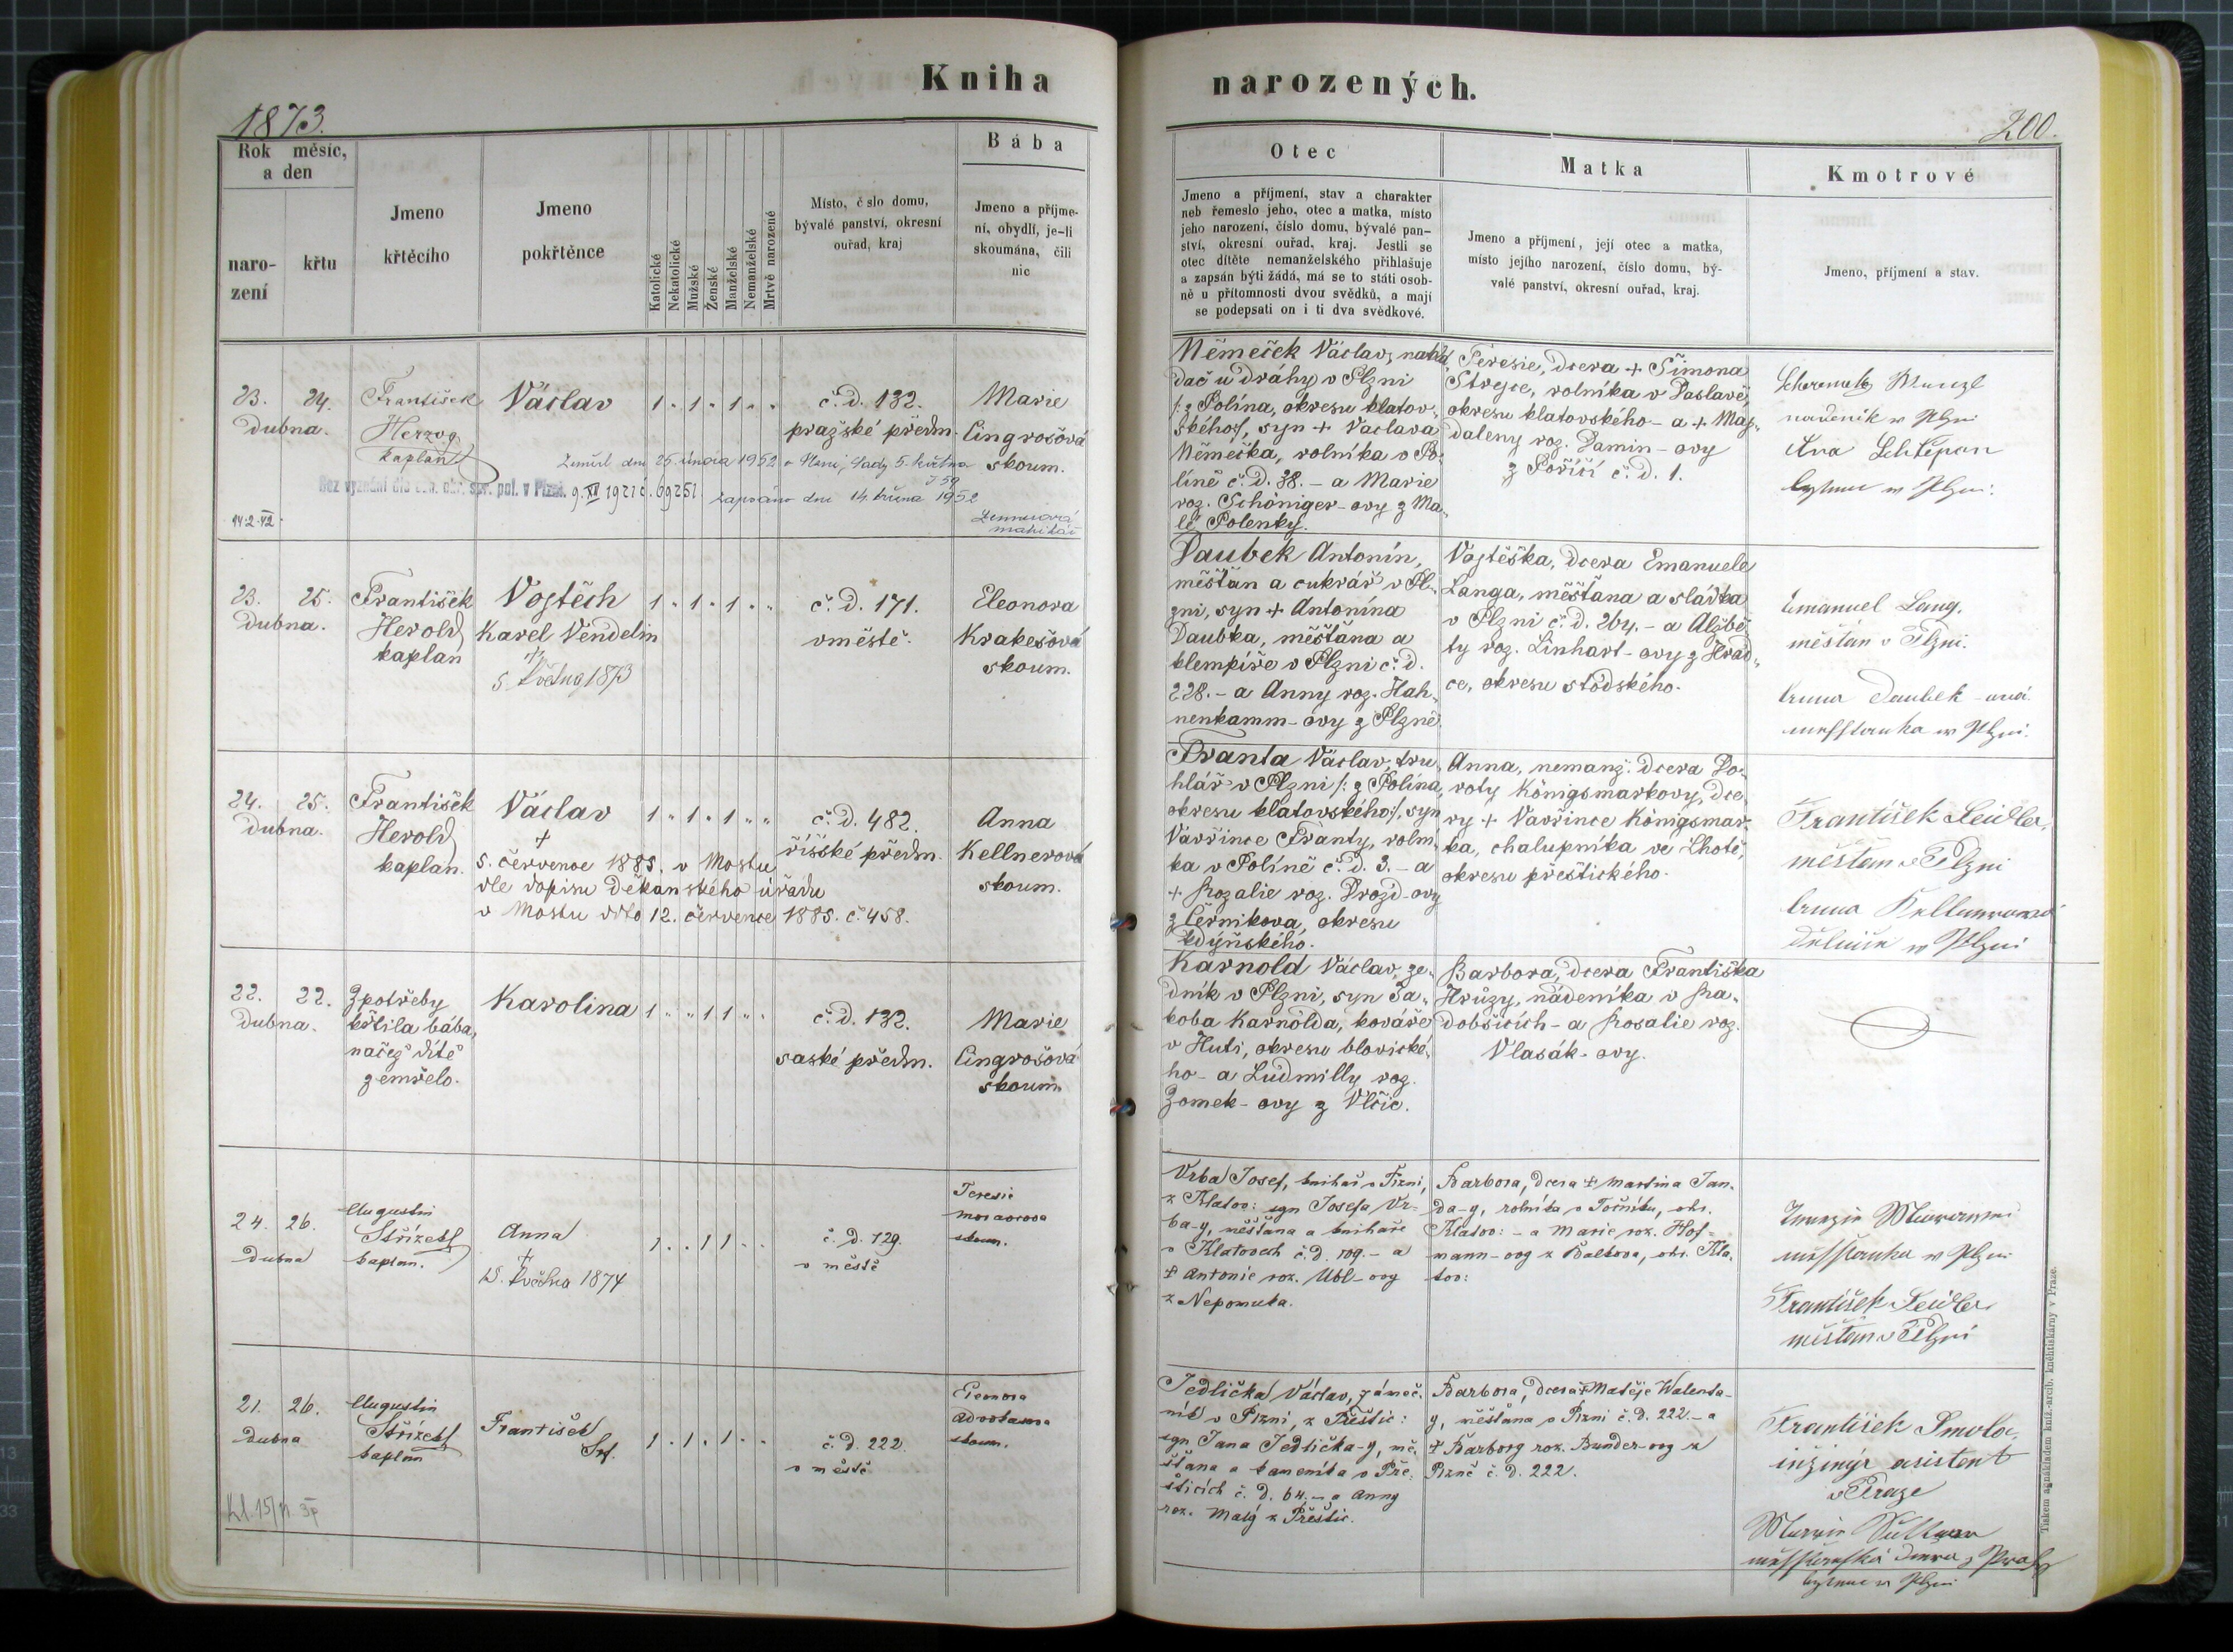 Kniha
narozených.
1873.
200.
Rok měsíc,
a den
naro-
zení
křtu
Jmeno
křtěcího
Jmeno
pokřtěnce
Katolické
Nekatolické
Mužské
Ženské
Manželské
Nemanželské
Mrtvě narozené
Místo, č slo domu,
bývalé panství, okresní
ouřad, kraj
Bába
Jmeno a příjme-
ní, obydlí, je-li
skoumána, čili
nic
Otec
Jmeno a příjmení, stav a charakter
neb řemeslo jeho, otec a matka, místo
jeho narození, číslo domu, bývalé pan-
ství, okresní ouřad, kraj. Jestli se
otec dítěte nemanželského přihlašuje
a zapsán býti žádá, má se to státi osob-
ně u přítomnosti dvou svědků, a mají
se podepsati on i ti dva svědkové.
Matka
Jmeno a příjmení, její otec a matka,
místo jejího narození, číslo domu, bý-
valé panství, okresní ouřad, kraj.
Kmotrové
Jmeno, příjmení a stav.
23. 24.
Dubna.
František
Herzog
kaplan
Václav
1 " 1 " 1 " "
č. d. 132.
pražské předm.
Marie
Cingrošová
skoum.
Zemřel dne 25. února 1952 v Plzni, Sady 5. května
Bez vyznání dle ozn. okr. spr. pol. v Plzni. 9. XII 1921 č. 69251
zapsáno dne 14. března 1952
14.2.42.
matrikář
Němeček Václav, nakla-
dač u dráhy v Plzni
/: z Polína, okresu klatov-
ského:/, syn + Václava
Němečka, rolníka v Po-
líně č. d. 38. - a Marie
roz. Schöniger-ovy z Ma-
lé Polenky.
Teresie, dcera + Šimona
Strejce, rolníka v Daslavě,
okresu klatovského - a + Mag-
daleny roz. Damin-ovy
z Poříčí č. d. 1.
nadenik w Plzni
bytem w Plzni.
23. 25.
Dubna.
František
Herold
kaplan
Vojtěch
Karel Vendelin
+
5. května 1873
1 " 1 " 1 " "
č. d. 171.
v městě.
Eleonora
Krakešová
skoum.
Daubek Antonín,
měšťan a cukrář v Pl-
zni, syn + Antonína
Daubka, měšťana a
klempíře v Plzni č. d.
228. - a Anny roz. Hah-
nenkamm-ovy z Plzně.
Vojtěška, dcera Emanuele
Langa, měšťana a sládka
v Plzni č. d. 264. - a Alžbě-
ty roz. Linhart-ovy z Hrad-
ce, okresu stodského.
Emanuel Lang,
měšťan v Plzni.
Anna Daubek-ová
w Plzni.
24. 25.
Dubna.
František
Herold
kaplan.
Václav
+
5. července 1885. v Mostu
dle dopisu děkanského úřadu
v Mostu ddto 12. července 1885. č. 458.
1 " 1 " 1 " "
č. d. 482.
říšské předm.
Anna
Kellnerová
skoum.
Franta Václav, tru-
hlář v Plzni /: z Polína,
okresu klatovského:/, syn
Vavřince Franty, rolní-
ka v Políně č. d. 3. - a
+ Rozalie roz. Drozd-ovy
z Černikova, okresu
kdýňského.
Anna, nemanž. dcera Do-
roty Königsmarkovy, dce-
ry + Vavřince Königsmar-
ka, chalupníka ve Lhotě,
okresu přeštického.
František Seidler,
měšťan v Plzni
Anna Kellnerová
w Plzni
22. 22.
Dubna.
Z potřeby
křtila bába,
načež dítě
zemřelo.
Karolina
1 " " 1 1 " "
č. d. 132.
saské předm.
Marie
Cingrošová
skoum.
Karnold Václav, ze-
dník v Plzni, syn Ja-
koba Karnolda, kováře
v Huti, okresu blovické-
ho - a Ludmilly roz.
Zomek-ovy z Vlčic.
Barbora, dcera Františka
Hrůzy, nádeníka v Ra-
dobšicích - a Rosalie roz.
Vlasák-ovy.
24. 26.
Dubna
Augustin
Střízek
kaplan.
Anna
+
15. května 1874
1 . . 1 1 . .
č. d. 129.
v městě
Teresie
Moravcova
skoum.
Vrba Josef, knihař v Plzni,
z Klatov: syn Josefa Vr-
ba-y, měšťana a knihaře
v Klatovech č. d. 109. - a
+ Antonie roz. Ubl-ovy
z Nepomuka.
Barbora, dcera + Martina Jan-
da-y, rolníka v Točníku, okr.
Klatov: - a Marie roz. Hof-
mann-ovy z Balkova, okr. Kla-
tov:
w Plzni
František Seidler
měšťan v Plzni
21. 26.
Dubna
Augustin
Střízek
kaplan
František
Ser.
1 . 1 . 1 . .
č. d. 222.
v městě
Eleonora
Advokatova
skoum.
Jedlička Václav, zámeč-
ník v Plzni, z Přeštic:
syn Jana Jedlička-y, mě-
šťana a kameníka v Pře-
šticích č. d. 64. - a Anny
roz. Malý z Přeštic.
Barbora, dcera + Matěje Walenta-
y, měšťana v Plzni č. d. 222. - a
+ Barbory roz. Bunder-ovy z
Plzně č. d. 222.
František Smola,
inžinýr asistent
v Praze
bytem w Plzni
Tiskem a nákladem kníž.-arcib. kněhtiskárny v Praze.